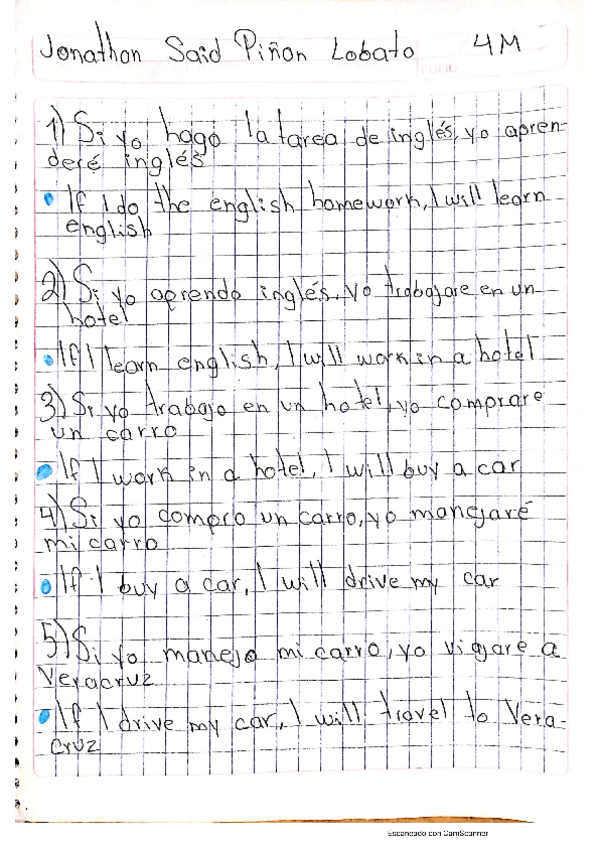 Jonathan Said Piñon Lobato 4M
1) Si yo hago la tarea de inglés, yo apren-
deré inglés
If I do the english homework, I will learn
english
2) Si yo aprendo inglés, yo trabajare en un
hotel
If I learn english, I will work in a hotel
3) Si yo trabajo en un hotel, yo comprare
un carro
If I work in a hotel, I will buy a car
4) Si yo compro un carro, yo manejaré
mi carro
If I buy a car, I will drive my car
5) Si yo manejo mi carro, yo viajare a
Veracruz
If I drive my car, I will travel to Vera-
cruz
Escaneado con CamScanner